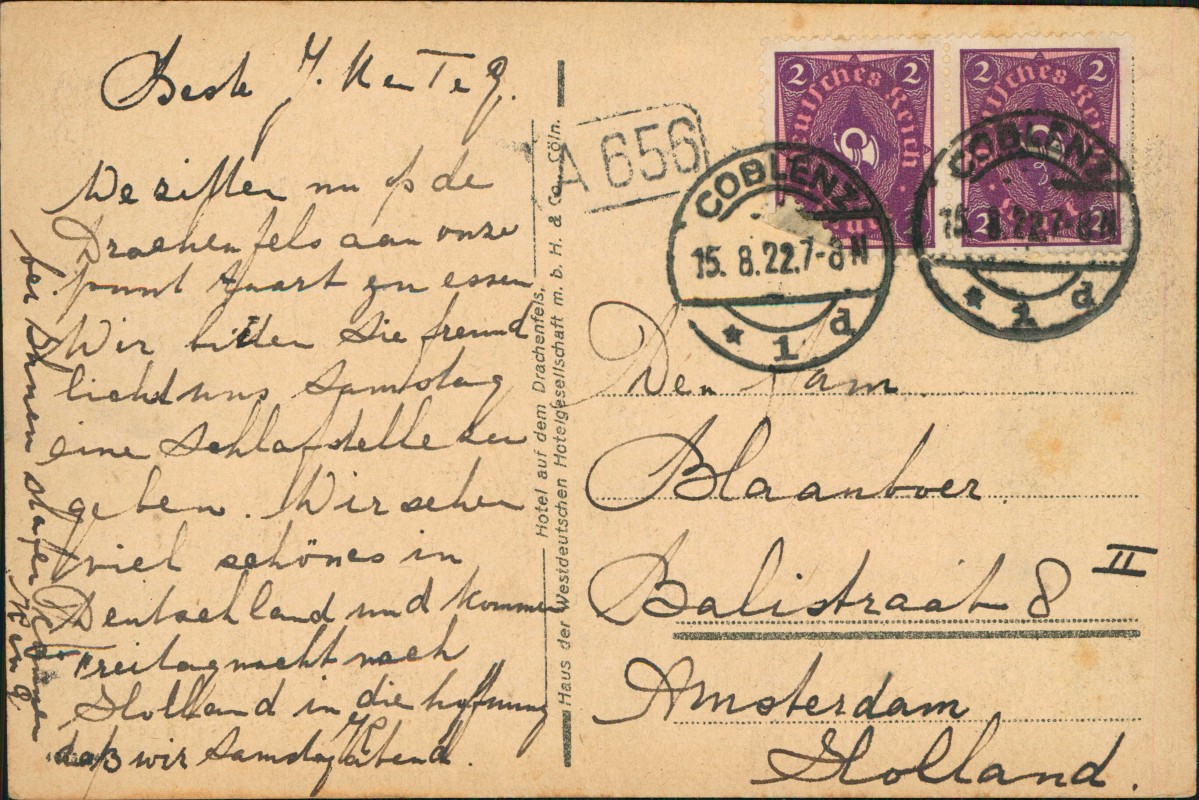 Beste J.
We zitten nu op de
Drachenfels aan onze
punt taart en essen
Wir bitten Sie freund
licht uns Samstag
eine Schlafstelle zu
geben. Wir sehen
viel schönes in
Deutschland und kommen
Freitagnacht nach
Holland in die hoffnung
daß wir Samstagabend
bei Ihnen
Hotel auf dem Drachenfels,
Haus der Westdeutschen Hotelgesellschaft m. b. H. & Co. Cöln.
A 656
2 Deutsches Reich 2
2 Deutsches Reich 2
2 2
COBLENZ
15. 8. 22. 7-8 N
* 1 d
COBLENZ
15. 8. 22. 7-8 N
* 1 d
Den Fam.
Blaanboer.
Balistraat 8 II
Amsterdam
Holland.